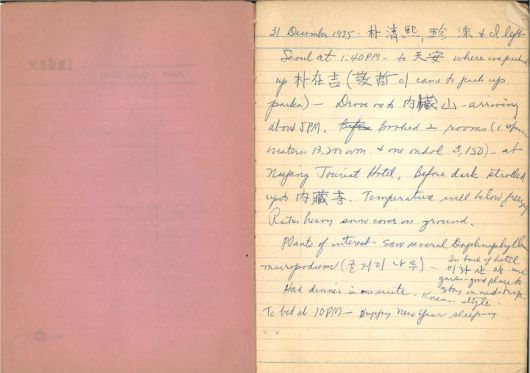 index
31 December 1975 - 朴淸熙, 珍洙 & I left
Seoul at 1:40PM - to 天安 where we picked
up 朴在吉 (敬哲 came to pick up
parka) - Drove on to 內藏山 - arriving
about 5PM. Before booked 2 rooms (1
western 13,200 won & one ondol 3,150) - at
Naejang Tourist Hotel, Before dark strolled
up to 內藏寺. Temperature well below freez
Rather heavy snow cover on ground.
Plants of interest - saw several Daphniphyllum
macropodum (굴거리 나무) -
In back of hotel
이화 산장
good place to
stay on next trip
Korean style.
Had dinner in our suite.
To bed at 10PM - Happy New Year sleeping